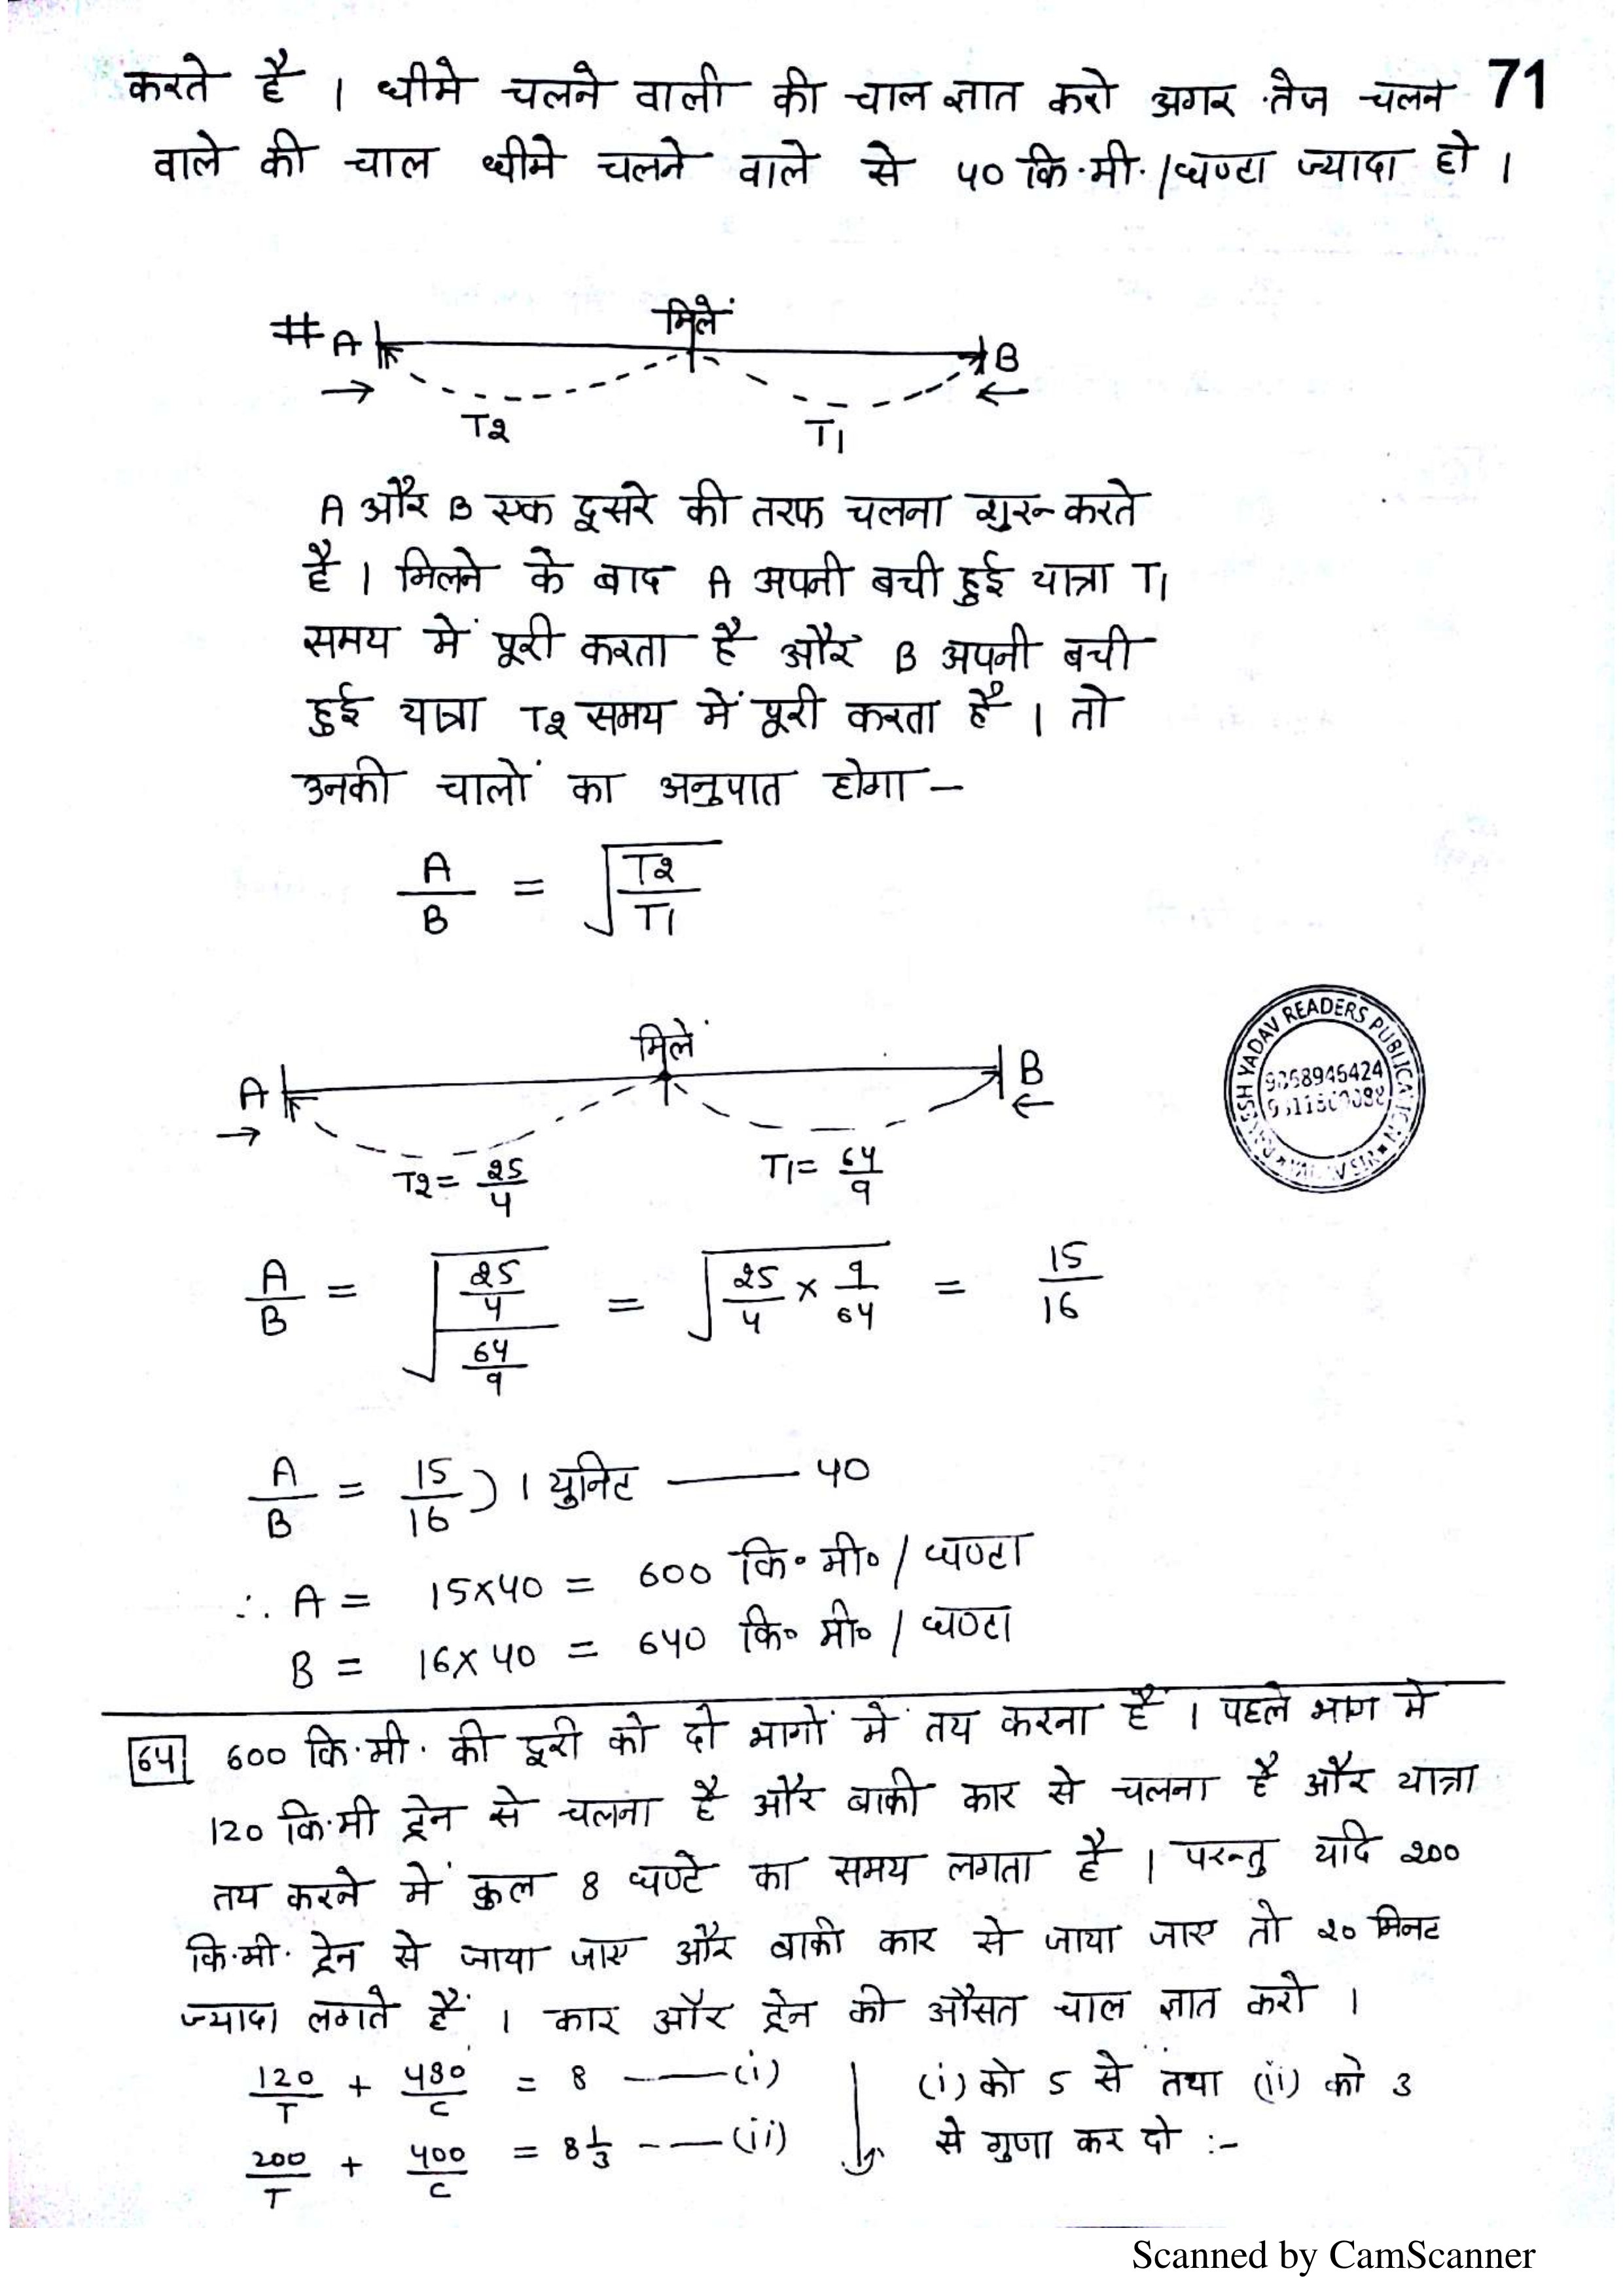 करते है । धीमे चलने वाली की चाल ज्ञात करो अगर तेज चलने 71
वाले की चाल धीमे चलने वाले से 40 कि.मी./घण्टा ज्यादा हो ।
# A मिलें B
→ ←
T2 T1
A और B एक दूसरे की तरफ चलना शुरू करते
है । मिलने के बाद A अपनी बची हुई यात्रा T1
समय में पूरी करता है और B अपनी बची
हुई यात्रा T2 समय में पूरी करता है । तो
उनकी चालों का अनुपात होगा –
A/B = √(T2/T1)
A मिलें B
→ ←
T2 = 25/4 T1 = 64/9
RAKESH YADAV READERS PUBLICATION
A/B = √((25/4)/(64/9)) = √(25/4 × 9/64) = 15/16
A/B = 15/16) 1 युनिट —— 40
∴ A = 15×40 = 600 कि॰ मी॰ / घण्टा
B = 16×40 = 640 कि॰ मी॰ / घण्टा
64 600 कि.मी. की दूरी को दो भागों में तय करना है । पहले भाग में
120 कि.मी ट्रेन से चलना है और बाकी कार से चलना है और यात्रा
तय करने में कुल 8 घण्टे का समय लगता है । परन्तु यदि 200
कि.मी. ट्रेन से जाया जाए और बाकी कार से जाया जाए तो 20 मिनट
ज्यादा लगते हैं । कार और ट्रेन की औसत चाल ज्ञात करो ।
120/T + 480/C = 8 ——(i) (i) को 5 से तथा (ii) को 3
200/T + 400/C = 8 1/3 ——(ii) से गुणा कर दो :-
Scanned by CamScanner